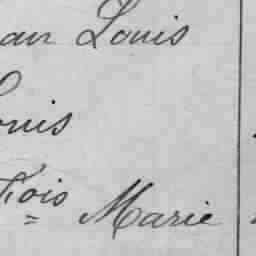 an Louis
ouis
Fois Marie